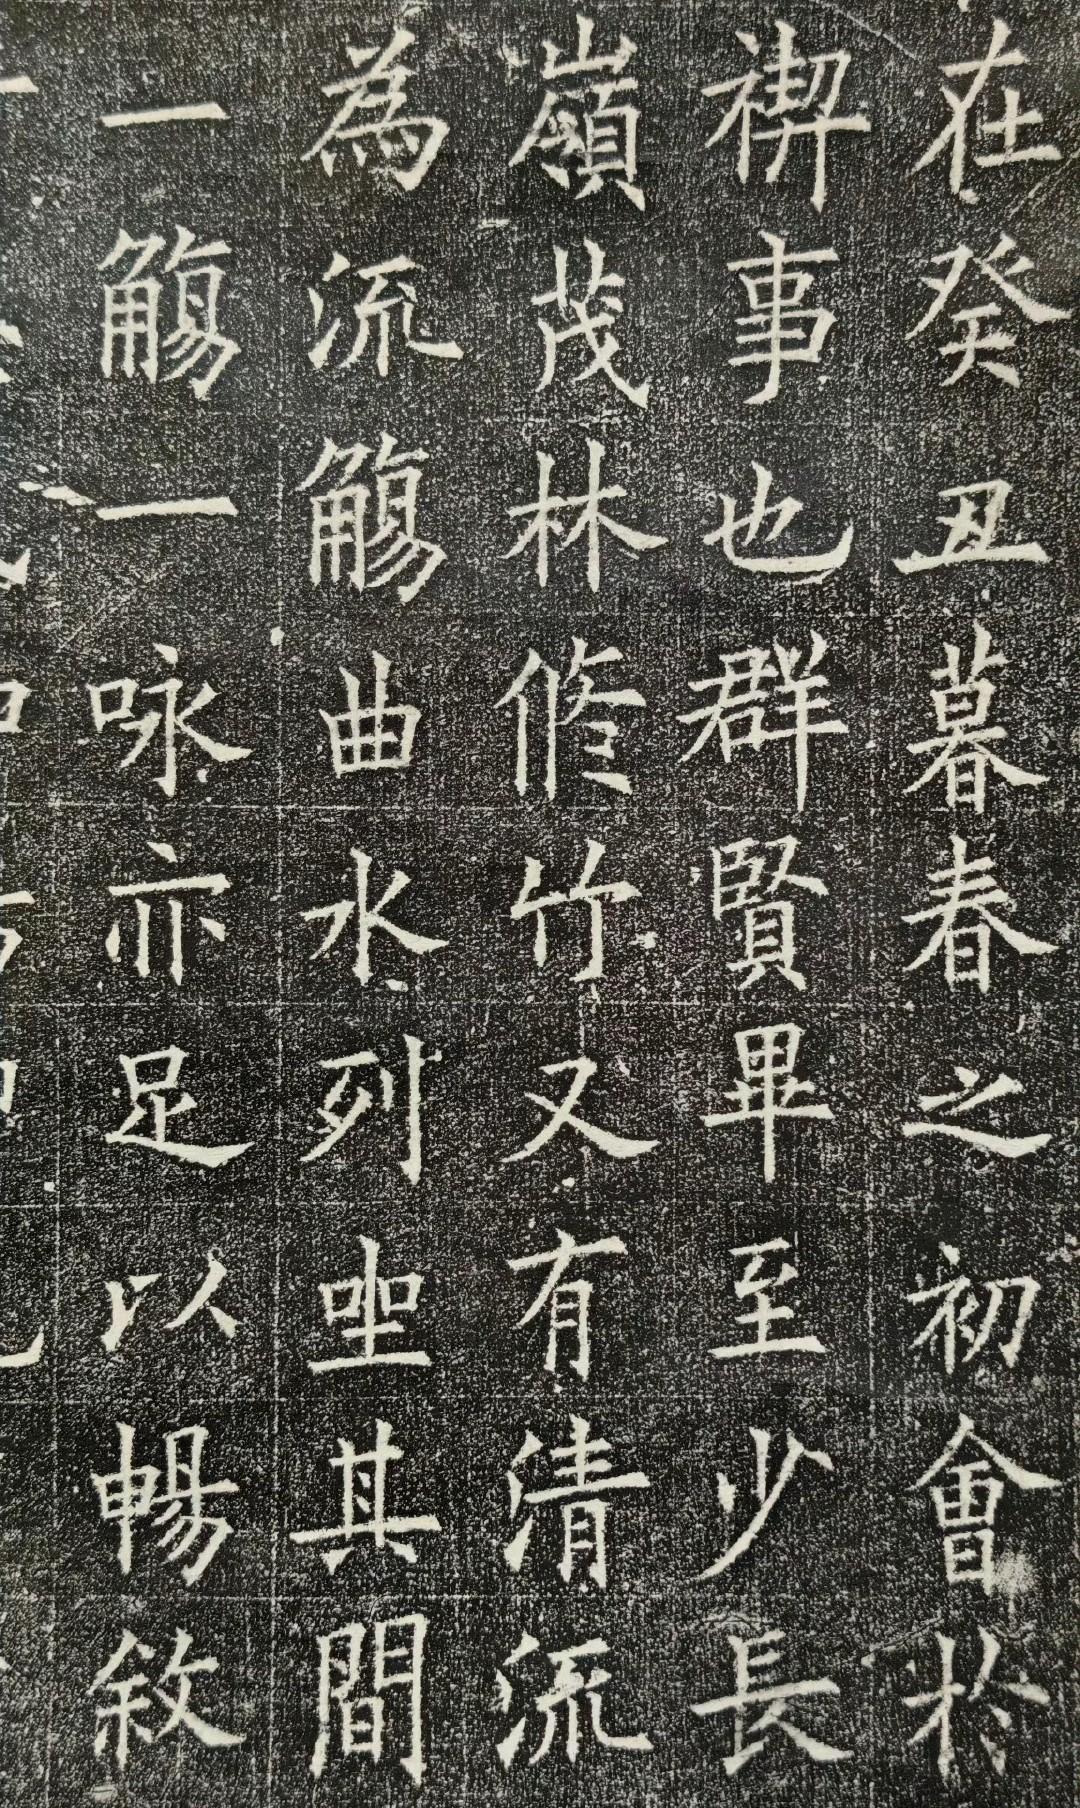 在癸丑暮春之初會於
禊事也群賢畢至少長
嶺茂林修竹又有清流
為流觴曲水列坐其間
一觴一咏亦足以暢敘